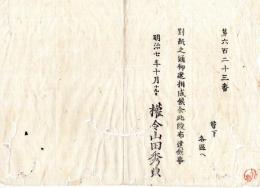 第六百二十三番
管下
各區へ
別紙之通御達相成候条此段布達候事
明治七年十月
權令山田秀典